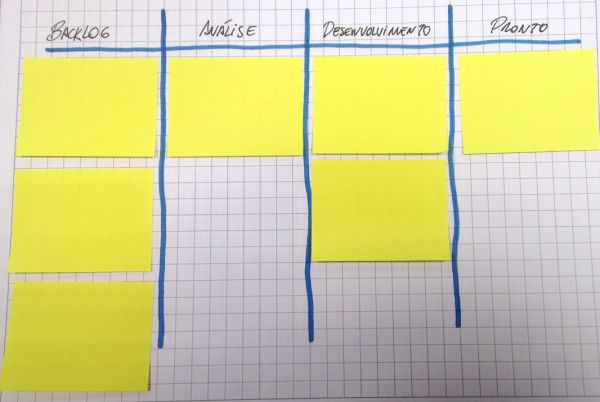 BACKLOG ANÁLISE DESENVOLVIMENTO PRONTO